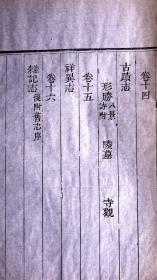 卷十四
古蹟志
形勝 八景詩附 陵墓 寺觀
卷十五
祥異志
卷十六
雜記志 後附舊志序